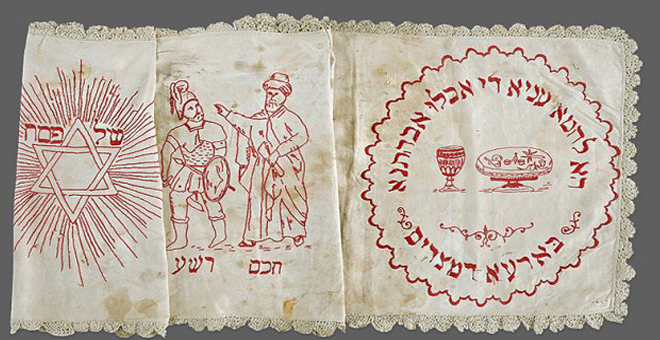 הא לחמא עניא די אכלו אבהתנא
בארעא דמצרים
חכם רשע
של פסח